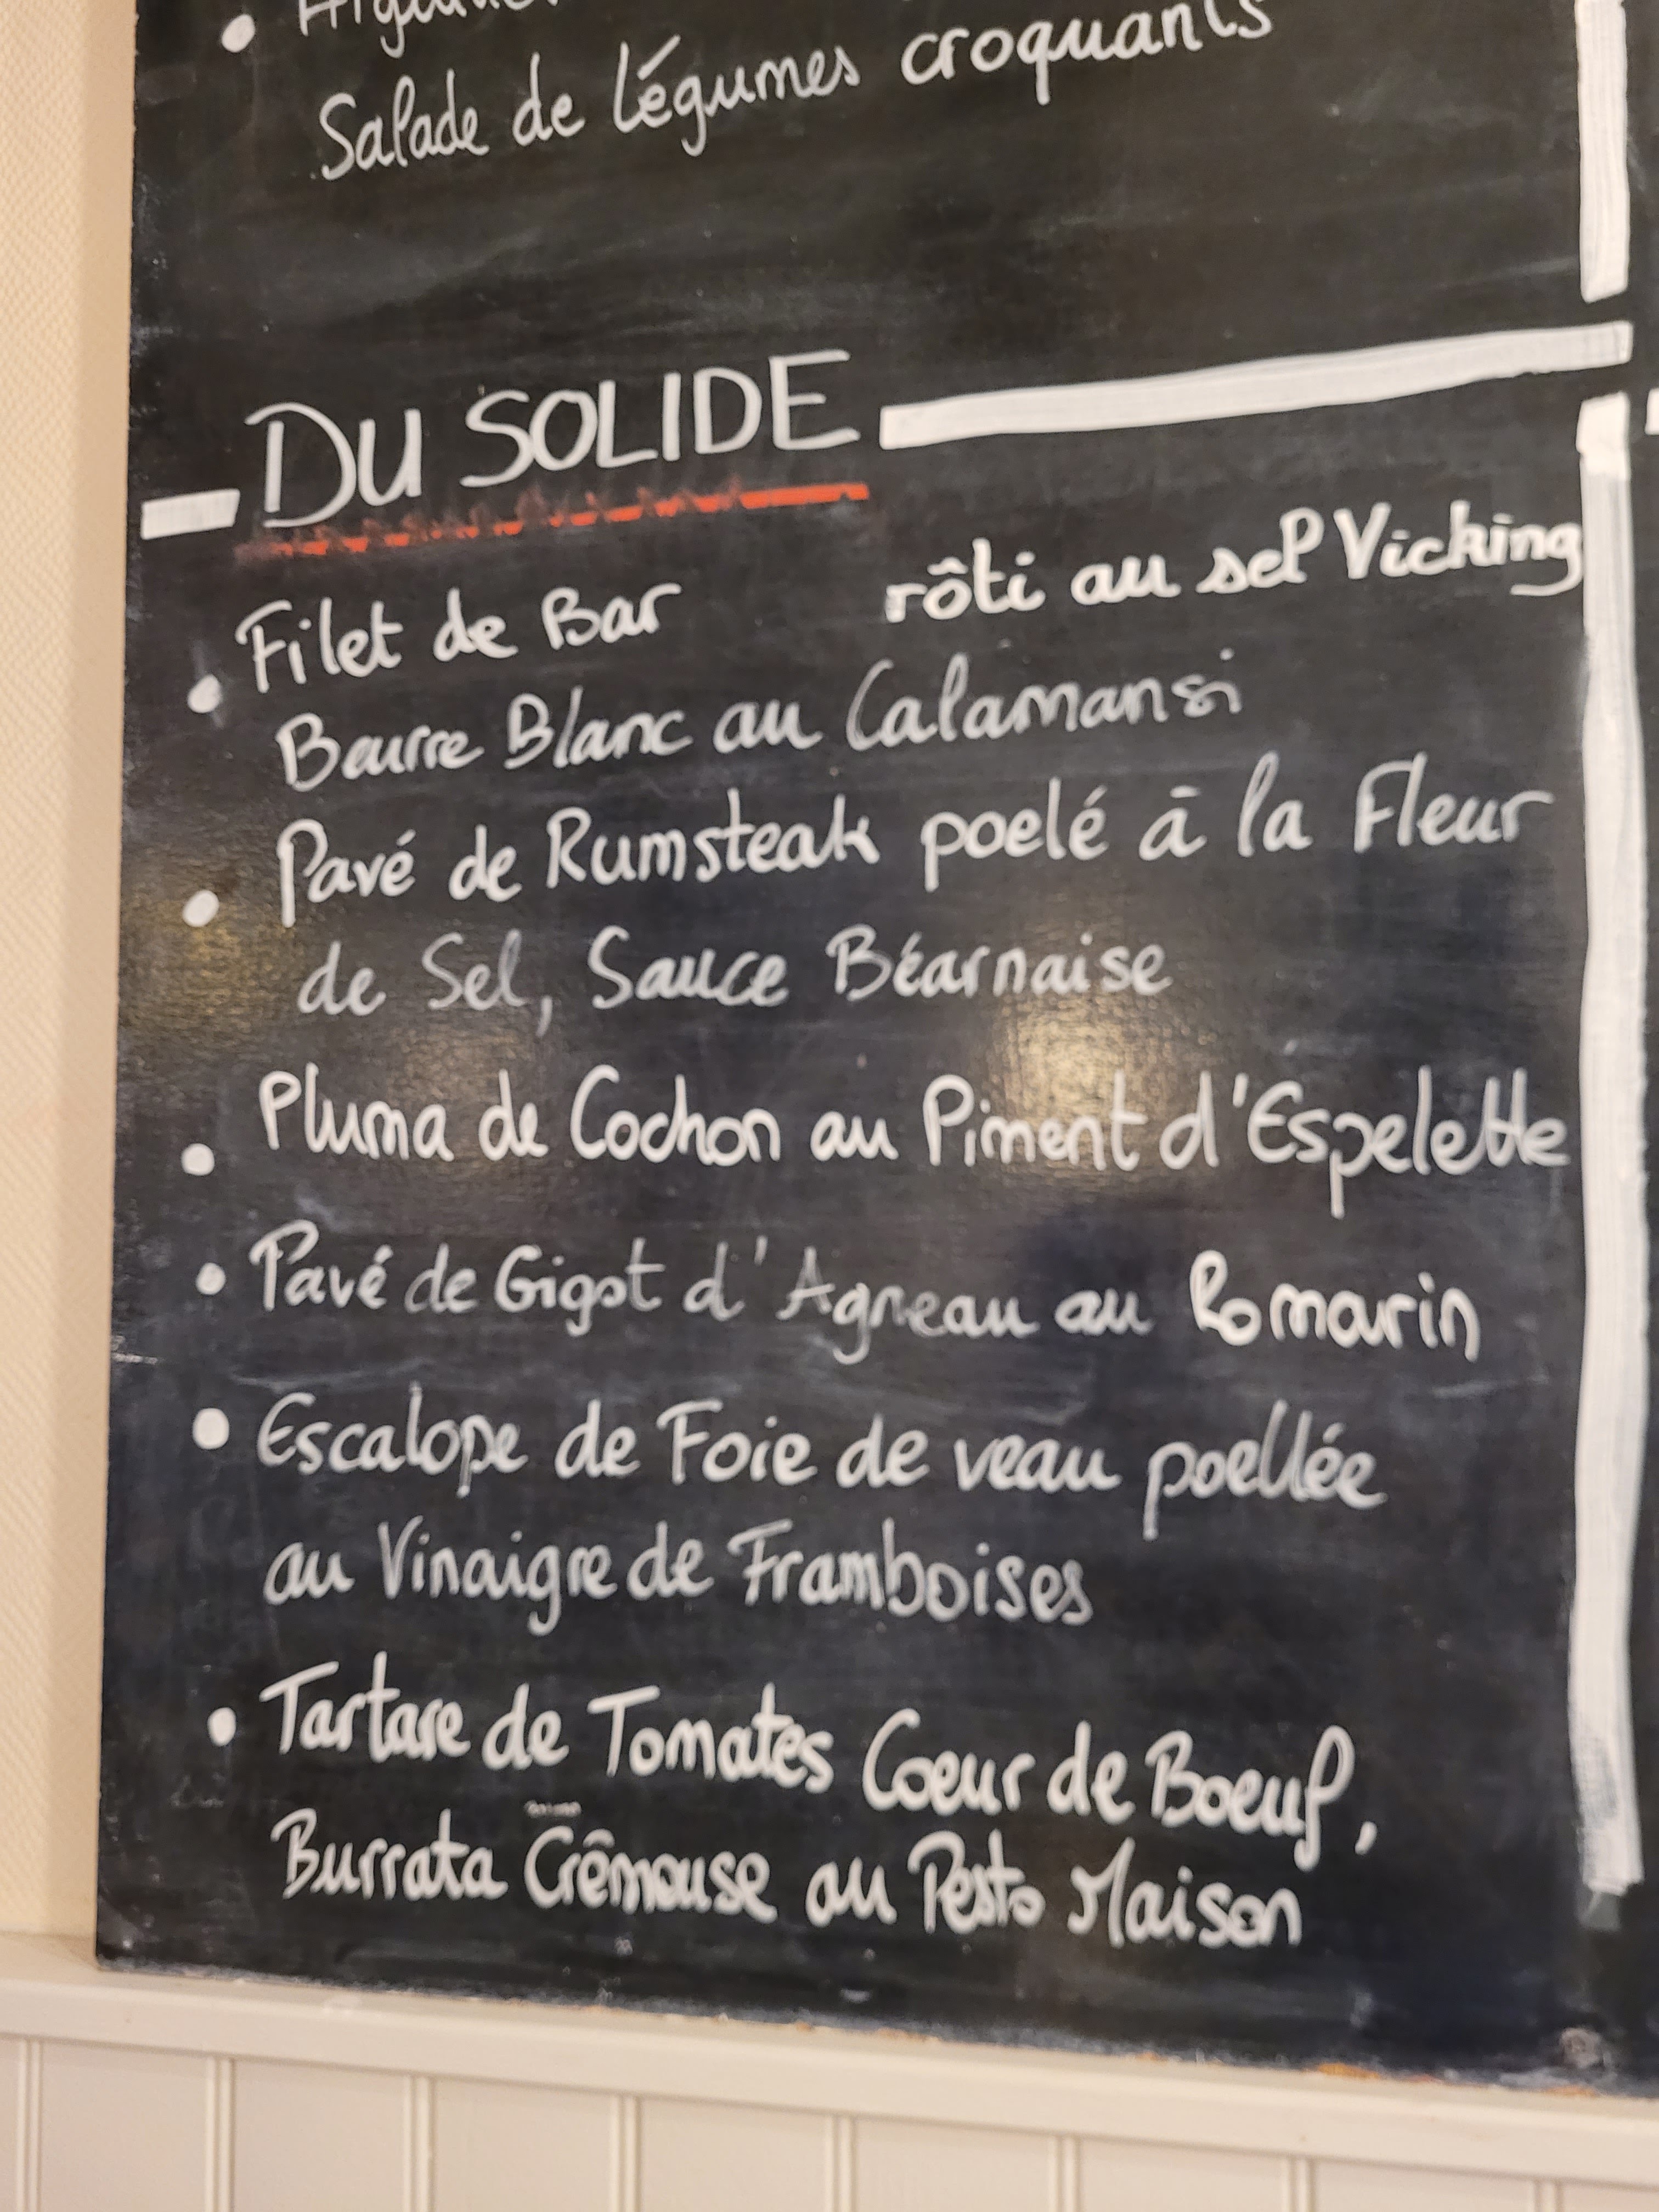 Salade de légumes croquants
DU SOLIDE
Filet de Bar rôti au sel Vicking
Beurre Blanc au Calamansi
Pavé de Rumsteak poelé à la Fleur
de Sel, Sauce Béarnaise
Pluma de Cochon au Piment d'Espelette
Pavé de Gigot d'Agneau au Romarin
Escalope de Foie de veau poellée
au Vinaigre de Framboises
Tartare de Tomates Coeur de Boeuf,
Burrata Crêmeuse au Pesto Maison